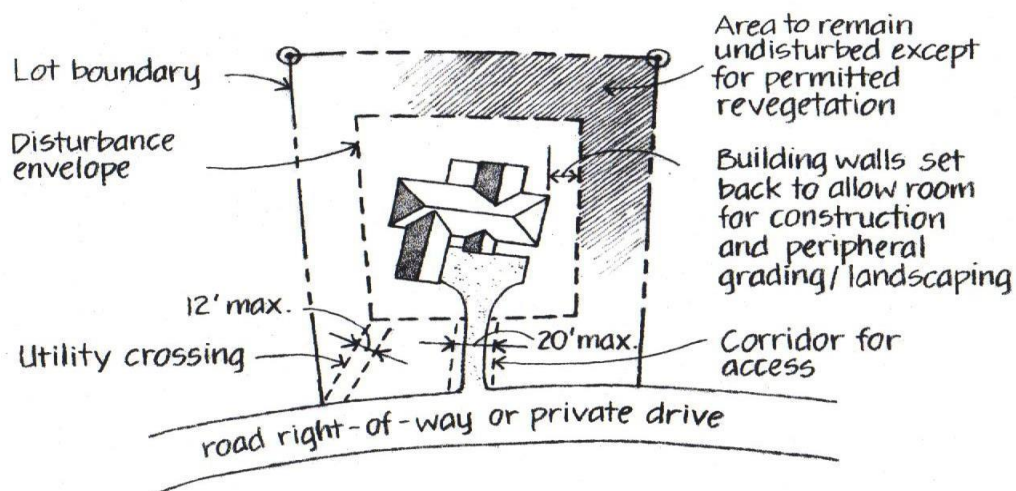 Lot boundary
Disturbance
envelope
12' max.
Utility crossing
Area to remain
undisturbed except
for permitted
revegetation
Building walls set
back to allow room
for construction
and peripheral
grading/landscaping
20' max.
Corridor for
access
road right-of-way or private drive